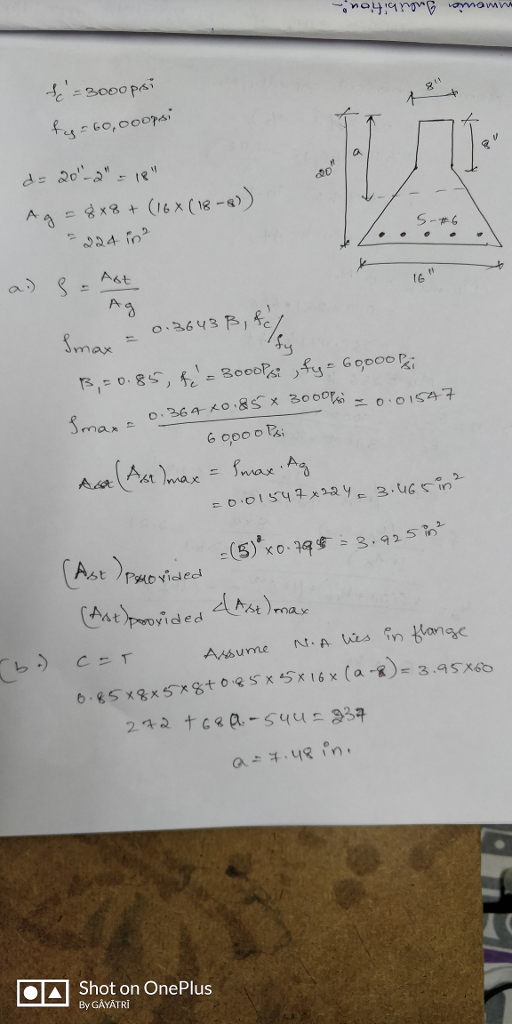 Inhibition:-
fc' = 3000psi
fy = 60,000psi
d = 20"-2" = 18"
Ag = 8x8 + (16x(18-8))
= 224 in²
8"
20"
a
8"
5-#6
16"
a.) ρ = Ast/Ag
ρmax = 0.3643 β₁ fc'/fy
β₁ = 0.85, fc' = 3000Psi, fy = 60,000Psi
ρmax = 0.364 x0.85 x 3000Psi / 60,000Psi = 0.01547
(Ast)max = ρmax. Ag
= 0.01547x224 = 3.465in²
(Ast)provided = (5) x0. = 3.925in²
(Ast)provided < (Ast)max
(b.) C = T Assume N.A lies in flange
0.85x8x5x8+0.85x5x16x(a-8) = 3.95x60
272 + 68a - 544 = 237
a = 7.48 in.
Shot on OnePlus
By GÂYÂTRÎ